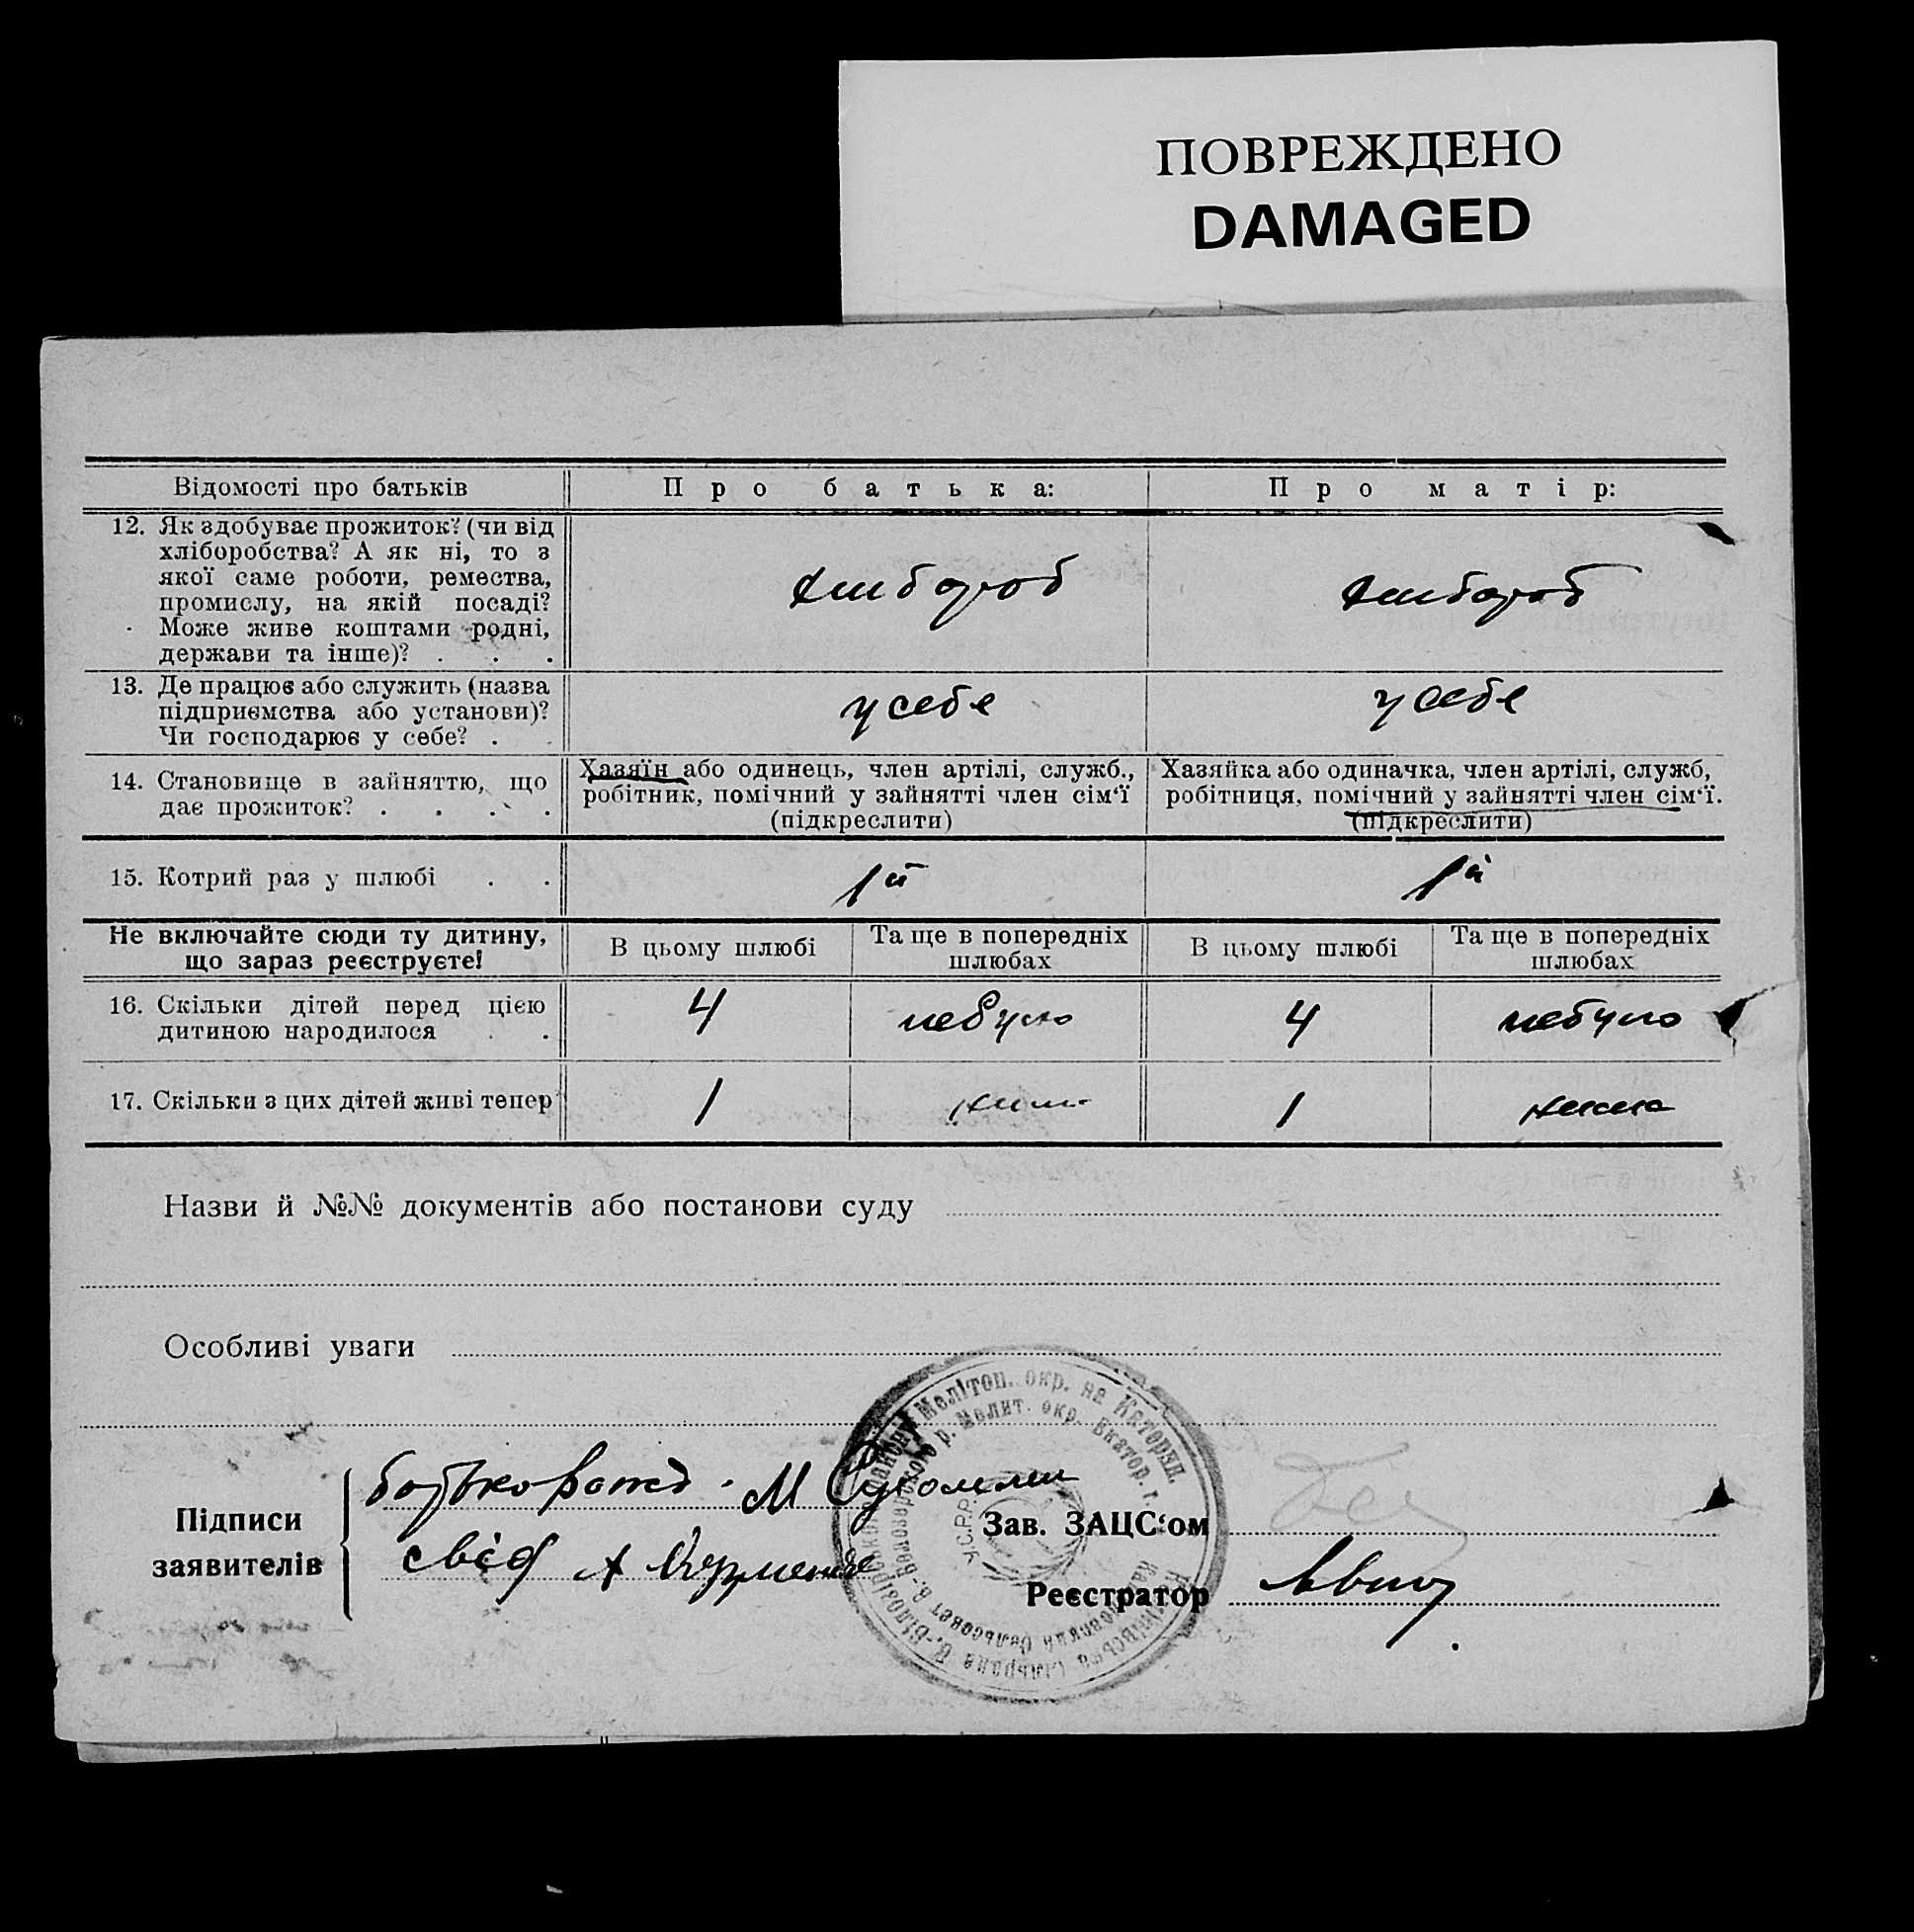 ПОВРЕЖДЕНО
DAMAGED
Відомості про батьків
Про батька:
Про матір:
12. Як здобуває прожиток? (чи від
хліборобства? А як ні, то з
якої саме роботи, ремества,
промислу, на якій посаді?
Може живе коштами родні,
держави та інше)? . . .
хлибороб
хлибороб
13. Де працює або служить (назва
підприємства або установи)?
Чи господарює у себе? . .
у себе
у себе
14. Становище в зайняттю, що
дає прожиток? . . . .
Хазяїн або одинець, член артілі, служб.,
робітник, помічний у зайнятті член сім‘ї
(підкреслити)
Хазяйка або одиначка, член артілі, служб,
робітниця, помічний у зайнятті член сім‘ї.
(підкреслити)
15. Котрий раз у шлюбі . .
1й
1й
Не включайте сюди ту дитину,
що зараз реєструєте!
В цьому шлюбі
Та ще в попередніх
шлюбах
В цьому шлюбі
Та ще в попередніх
шлюбах
16. Скільки дітей перед цією
дитиною народилося . .
4
небуло
4
небуло
17. Скільки з цих дітей живі тепер
1
1
Назви й №№ документів або постанови суду
Особливі уваги
Мелітоп. окр. на Катерин.
р. Мелит. окр. Екатор. г.
У.С.Р.Р.
Підписи
заявителів
батько
М
свід
Зав. ЗАЦС‘ом
Реєстратор